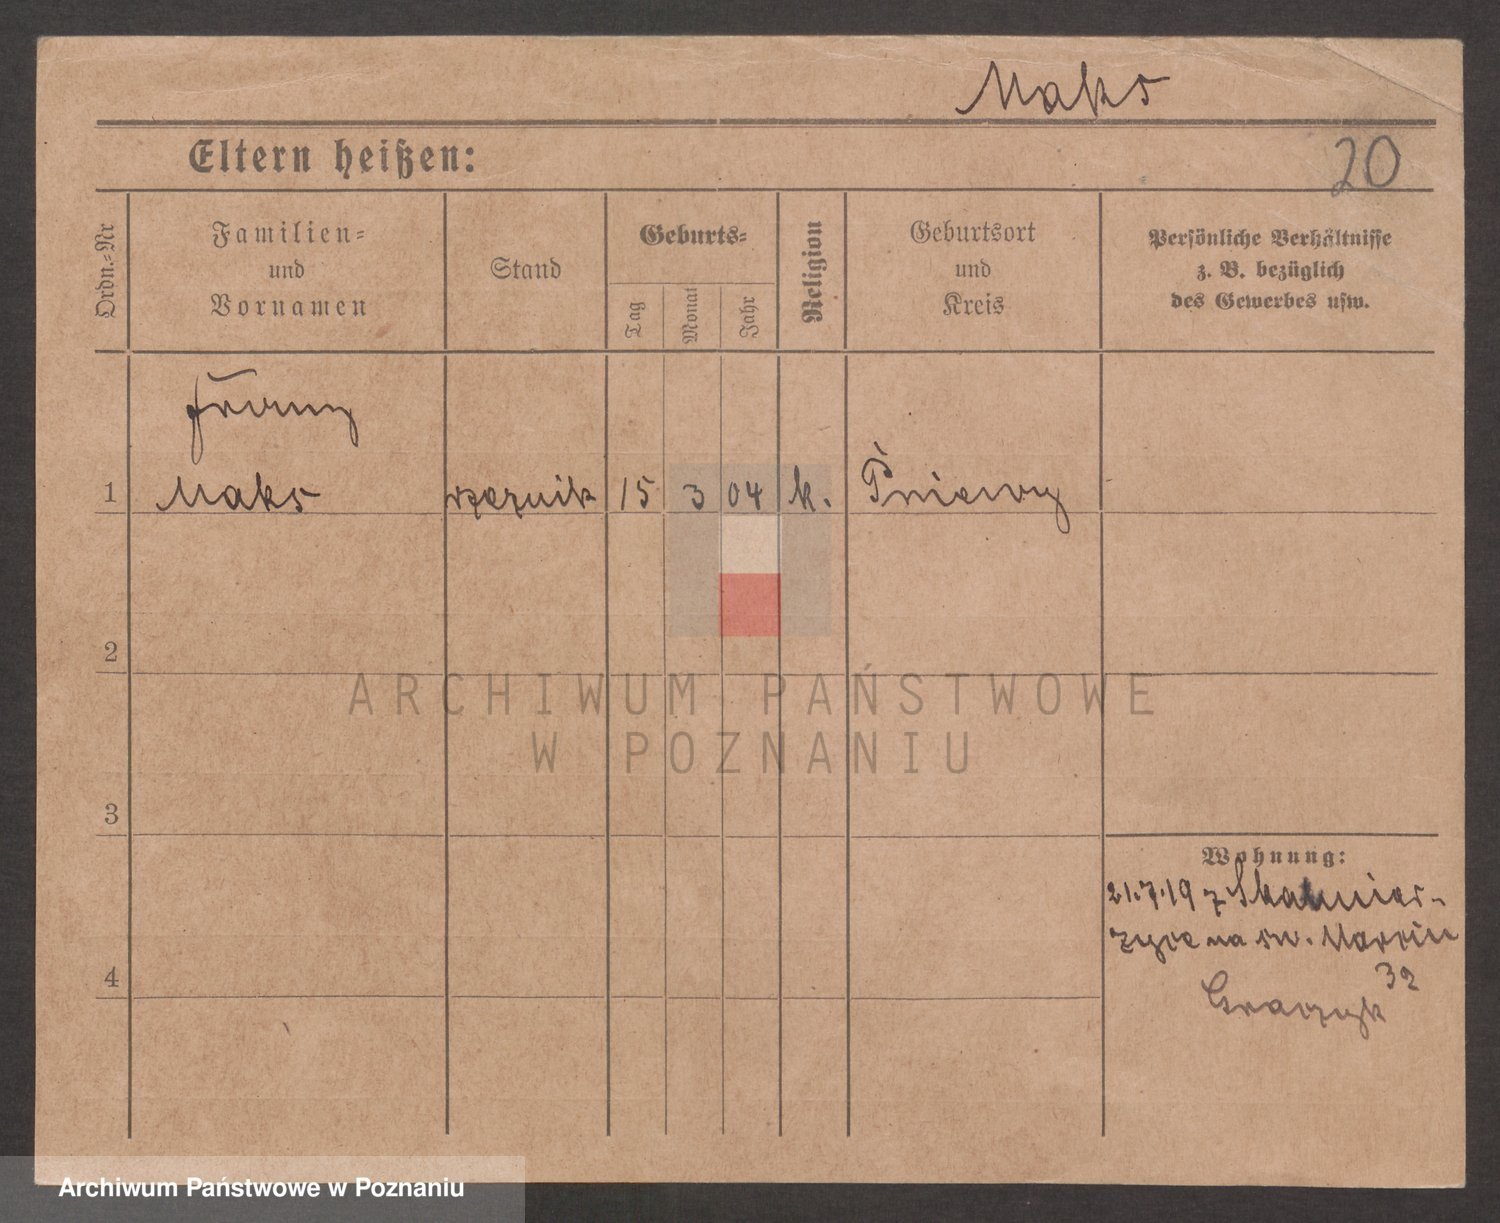 Maks
20
Eltern heißen:
Ordn.-Nr
Familien-
und
Vornamen
Stand
Geburts-
Tag
Monat
Jahr
Religion
Geburtsort
und
Kreis
Persönliche Verhältnisse
z. B. bezüglich
des Gewerbes usw.
Franz
1 Maks rzeźnik 15 3 04 k. Pniewy
2
3
4
ARCHIWUM PAŃSTWOWE
W POZNANIU
Wohnung:
21.7.19 z Skalmier-
zyce na św. Marcin
32
Graczyk
Archiwum Państwowe w Poznaniu